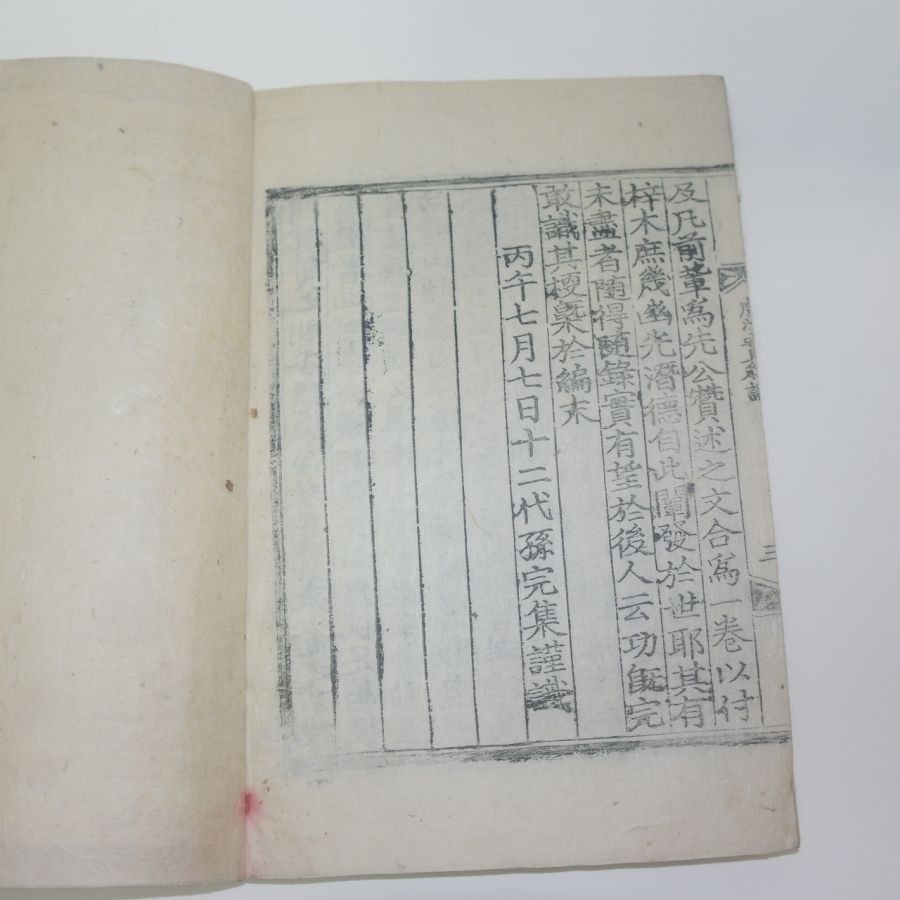 及凡前輩爲先公贊述之文合爲一卷以付
梓木庶幾幽光潛德自此闡發於世耶其有
未盡者隨得隨錄實有望於後人云功旣完
敢識其梗槩於編末
丙午七月七日十二代孫完集謹識
三